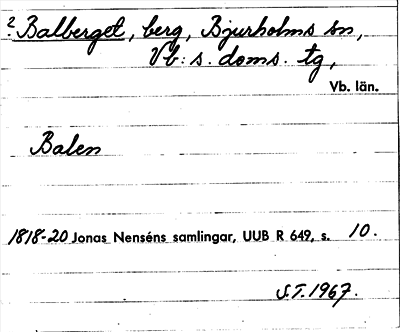 2. Balberget, berg, Bjurholms sn,
Vb: s. doms. tg,
Vb. län.
Balen
1818-20 Jonas Nenséns samlingar, UUB R 649, s. 10.
S.T. 1967.